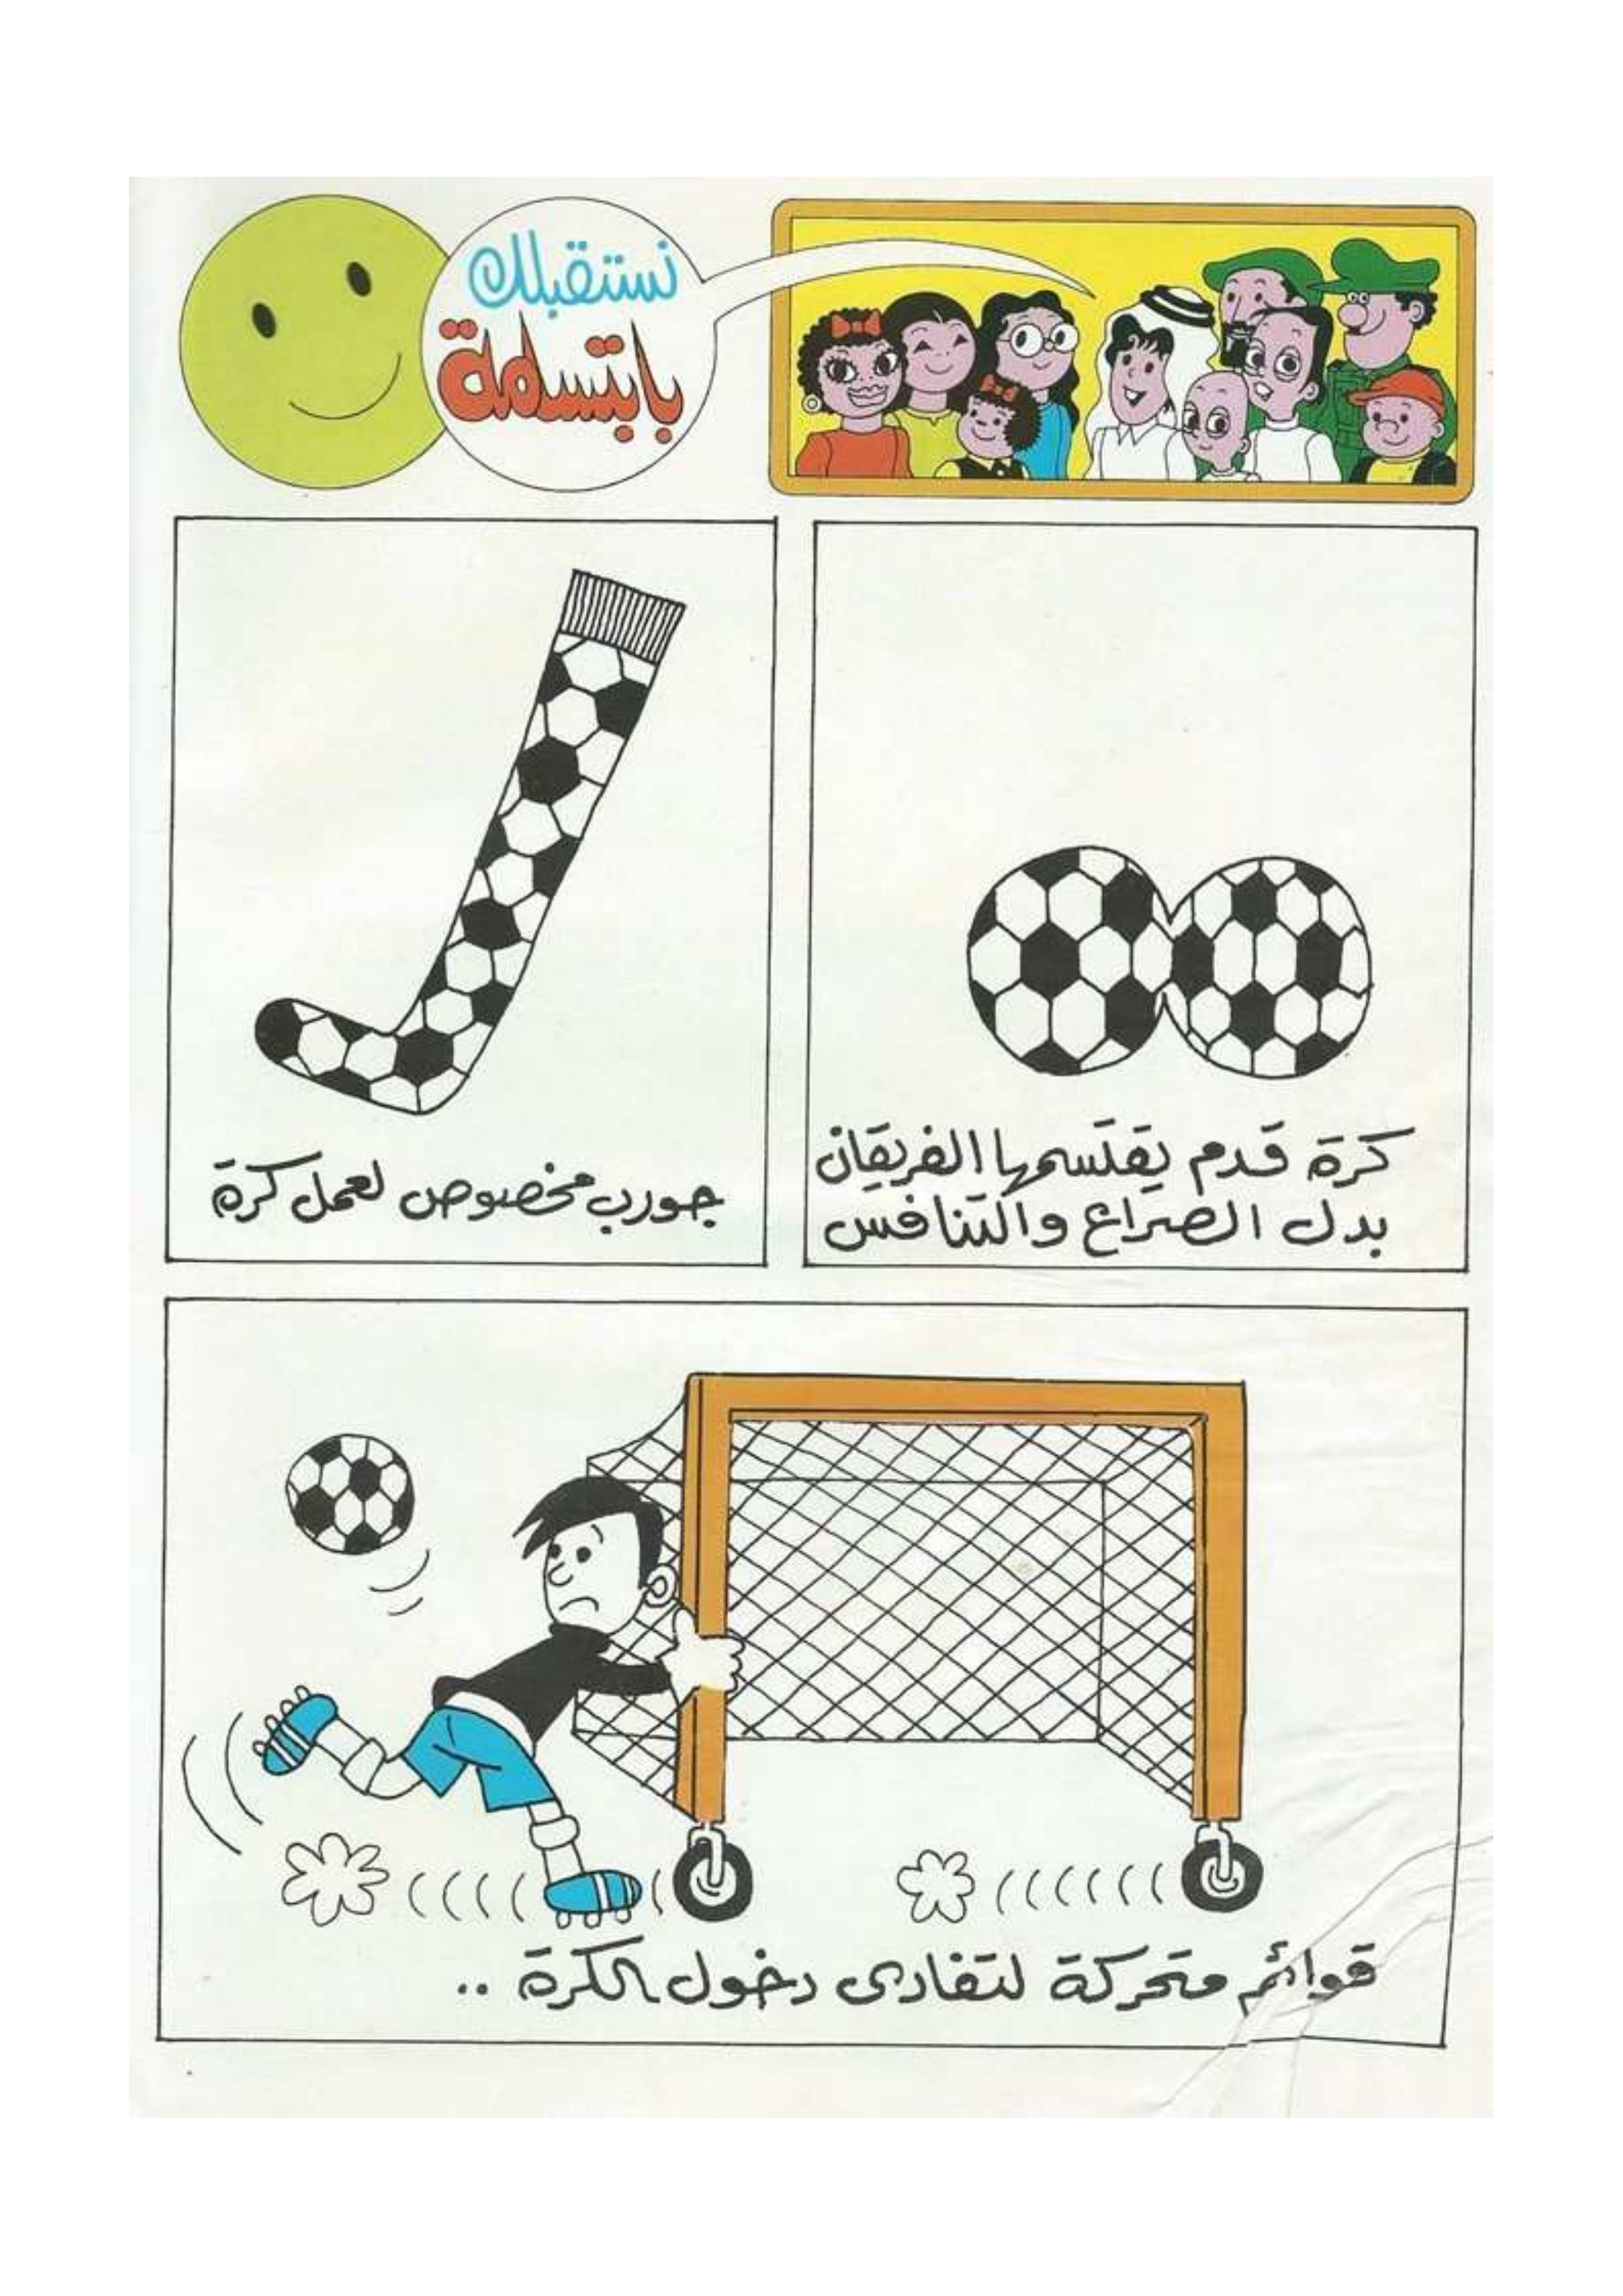 نستقبلك
بابتسامة
كرة قدم يقتسمها الفريقان
بدل الصراع والتنافس
جورب مخصوص لعمل كرة
قوائم متحركة لتفادى دخول الكرة ..